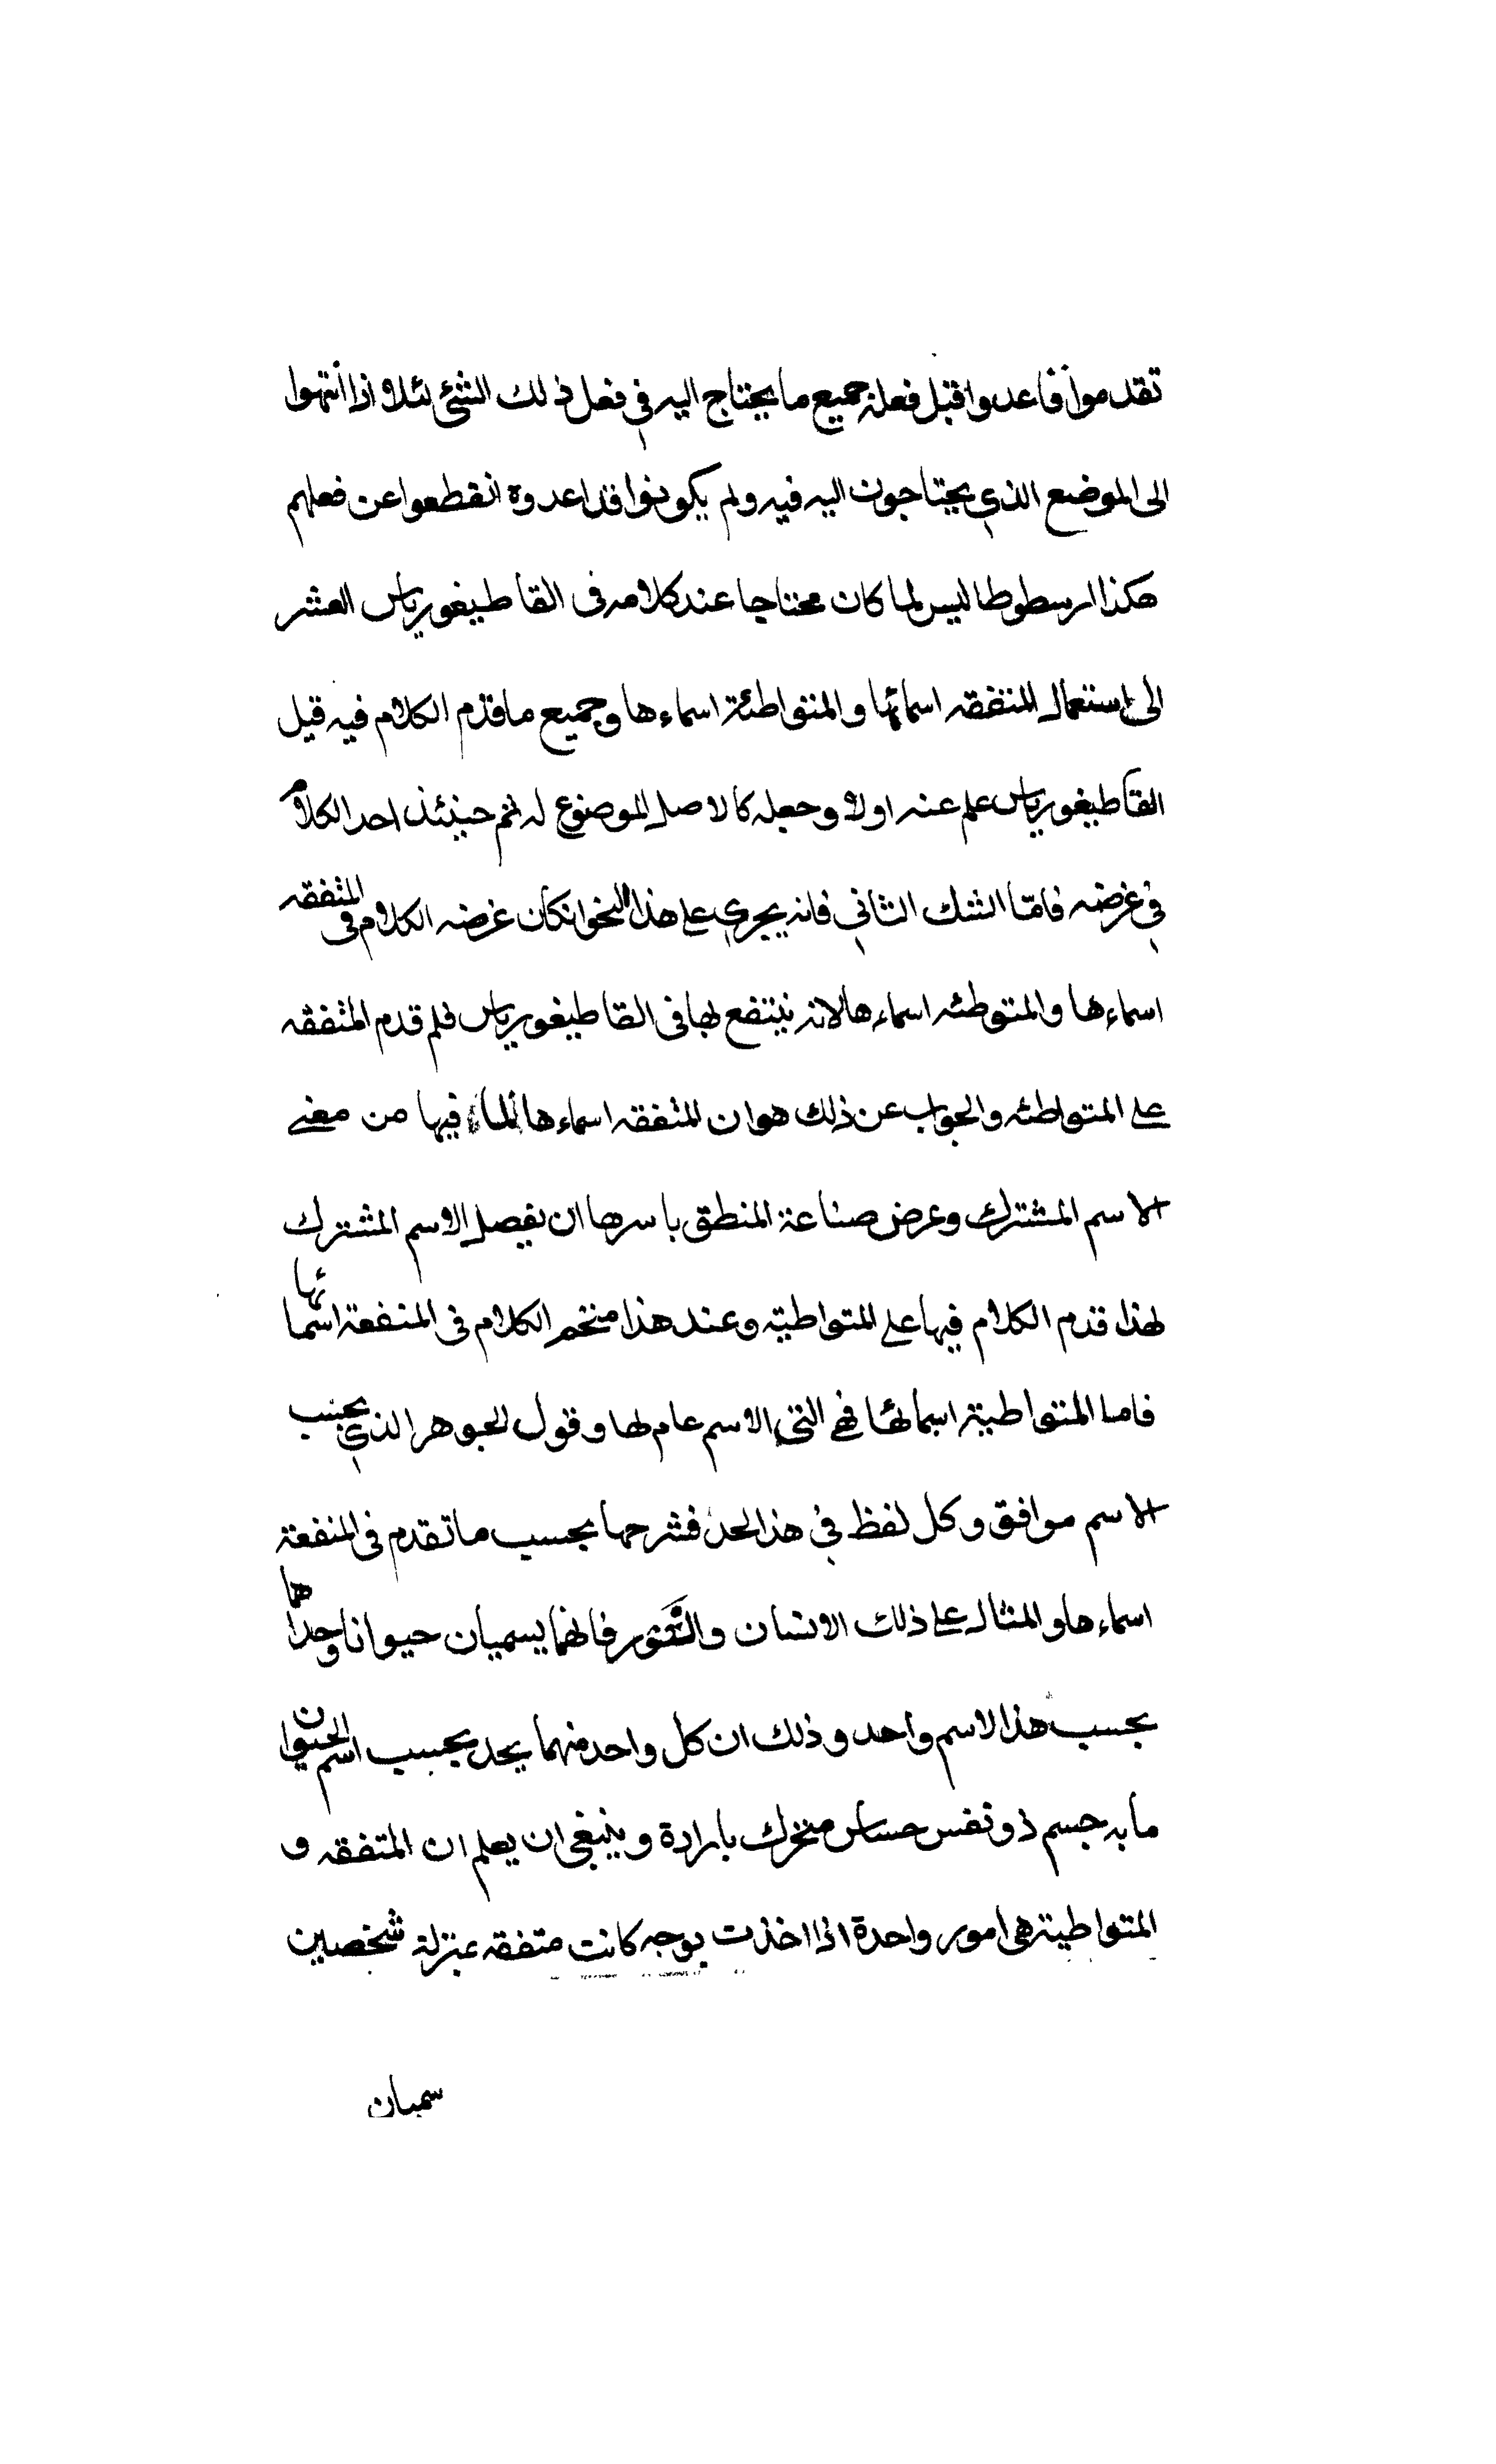 تقدموا فاعدوا قبل فعله جميع ما يحتاج اليه في فعل ذلك الشئ لئلا اذا انتهوا
الى الموضع الذي يحتاجون اليه فيه ولم يكونوا قد اعدوه انقطعوا عن فعلهم
هكذا ارسطوطاليس لما كان محتاجا عند كلامه فى القاطيغورياس العشر
الى استعمال المتفقه اسمائها والمتواطئة اسماءها وجميع ما قدم الكلام فيه قبل
القاطيغورياس علم عنه اولا وجعله كالاصل الموضوع له ثم حينئذ احد الكلام
في غرضه فامّا الشك الثاني فانه يجري على هذا النحو انكان غرضه الكلام فى المتفقه
اسماءها والمتوطئه اسماءها لانه ينتفع بها فى القاطيغورياس فلم قدم المتفقه
على المتواطئه والجواب عن ذلك هو ان المتفقه اسماءها لما فيها من معنے
الاسم المشترك وغرض صناعة المنطق باسرها ان يفصل الاسم المشترك
لهذا قدم الكلام فيها على المتواطية وعند هذا منختم الكلام فى المنفعة اسمائها
فاما المتواطية اسمائها فهى التى الاسم عام لها وقول الجوهر الذي بحسب
الاسم موافق وكل لفظ في هذا الحد فشرحها بحسب ما تقدم فى المنفعة
اسماءها والمثال على ذلك الانسان والثور فانهما يسميان حيوانا وحداهما
بحسب هذا الاسم واحد وذلك ان كل واحد منهما يحد بحسب اسم الحيوان
ما به جسم ذو نفس حساس متحرك بارادة وينبغى ان يعلم ان المتفقه و
المتواطية هى امور واحدة اذا اخذت بوجه كانت متفقه بمنزلة شخصين
سميان